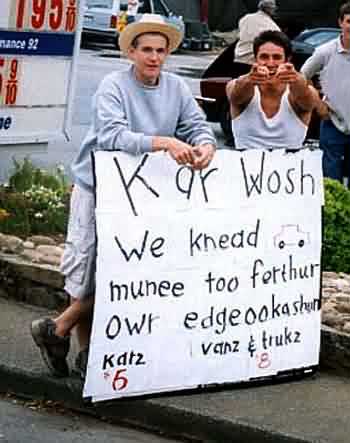 195 9/10
mance 92
9/10
Kar Wosh
we knead
munee too ferthur
owr edgeookashun
karz vanz & trukz
$5 $8